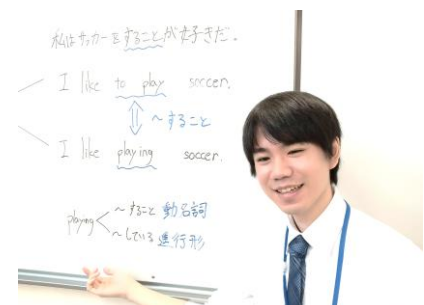 私はサッカーをすることが好きだ.
I like to play soccer.
～すること
I like playing soccer.
playing ～すること 動名詞
～している 進行形